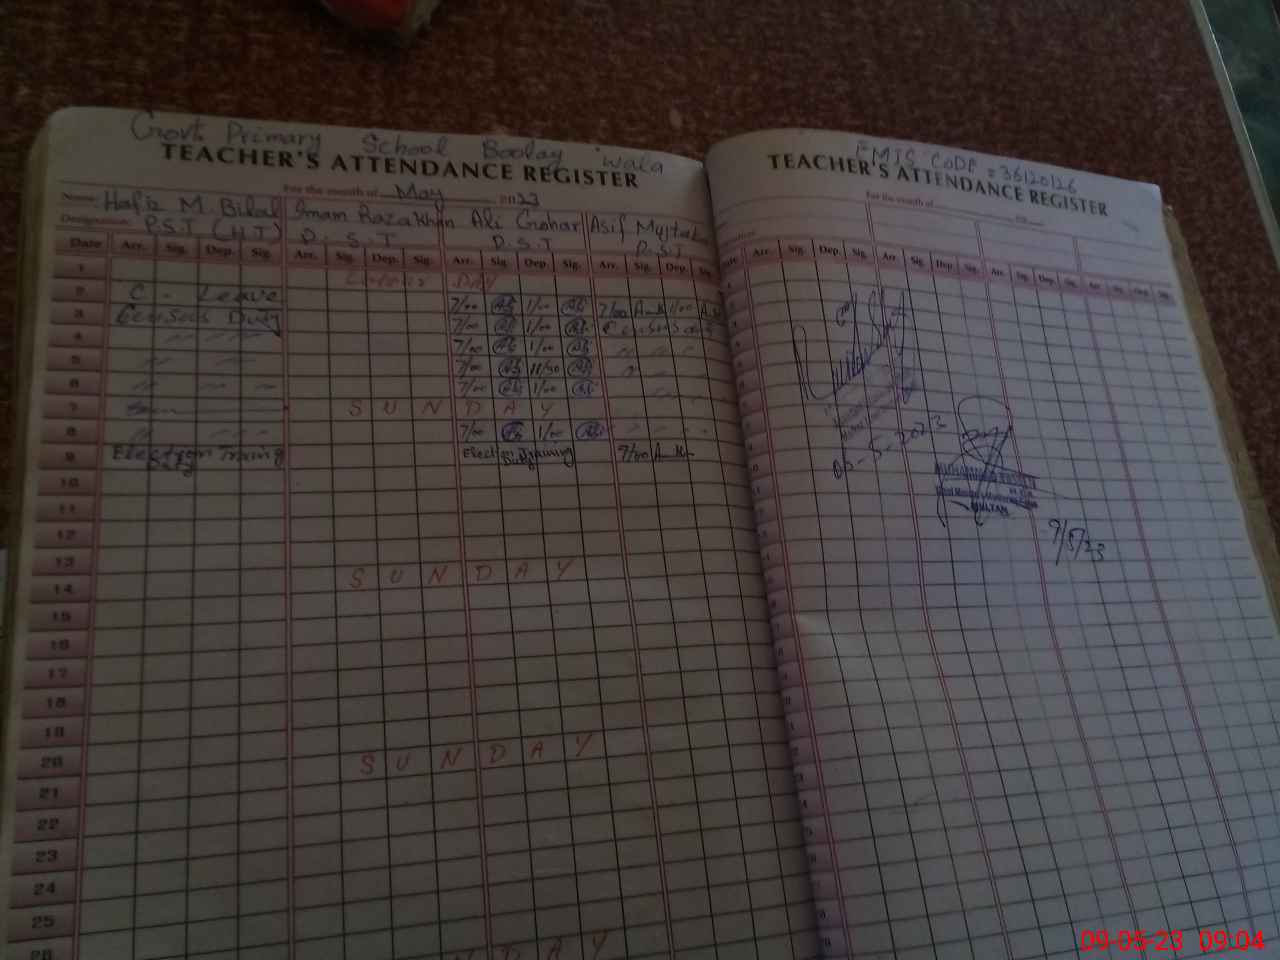 Govt Primary School Boolay wala
TEACHER'S ATTENDANCE REGISTER
For the month of May 2023
Name Hafiz M. Bilal Imam Raza Khan Ali Gohar Asif Mujtaba
Designation P.S.T (H.T) P.S.T P.S.T P.S.T
Date Arr. Sig. Dep. Sig. Arr. Sig. Dep. Sig. Arr. Sig. Dep. Sig. Arr. Sig. Dep. Sig.
1 Labour Day
2 C - Leave 7/00 1/00 7/00 1/00
3 Census Duty 7/00 1/00 Census duty
4 7/00 1/00
5 7/00 11/30
6 7/00 1/00
7 SUNDAY
8 7/00 1/00
9 Election Training Duty Election Training Duty 7/00
10
11
12
13
14 SUNDAY
15
16
17
18
19
20 SUNDAY
21
22
23
24
25
26 DAY
FMIS CODE = 36120126
TEACHER'S ATTENDANCE REGISTER
For the month of
Date Arr. Sig. Dep. Sig. Arr. Sig. Dep. Sig. Arr. Sig. Dep. Sig. Arr. Sig. Dep. Sig.
-5-2023
MUHAMMAD
MULTAN
9/5/23
09-05-23 09:04